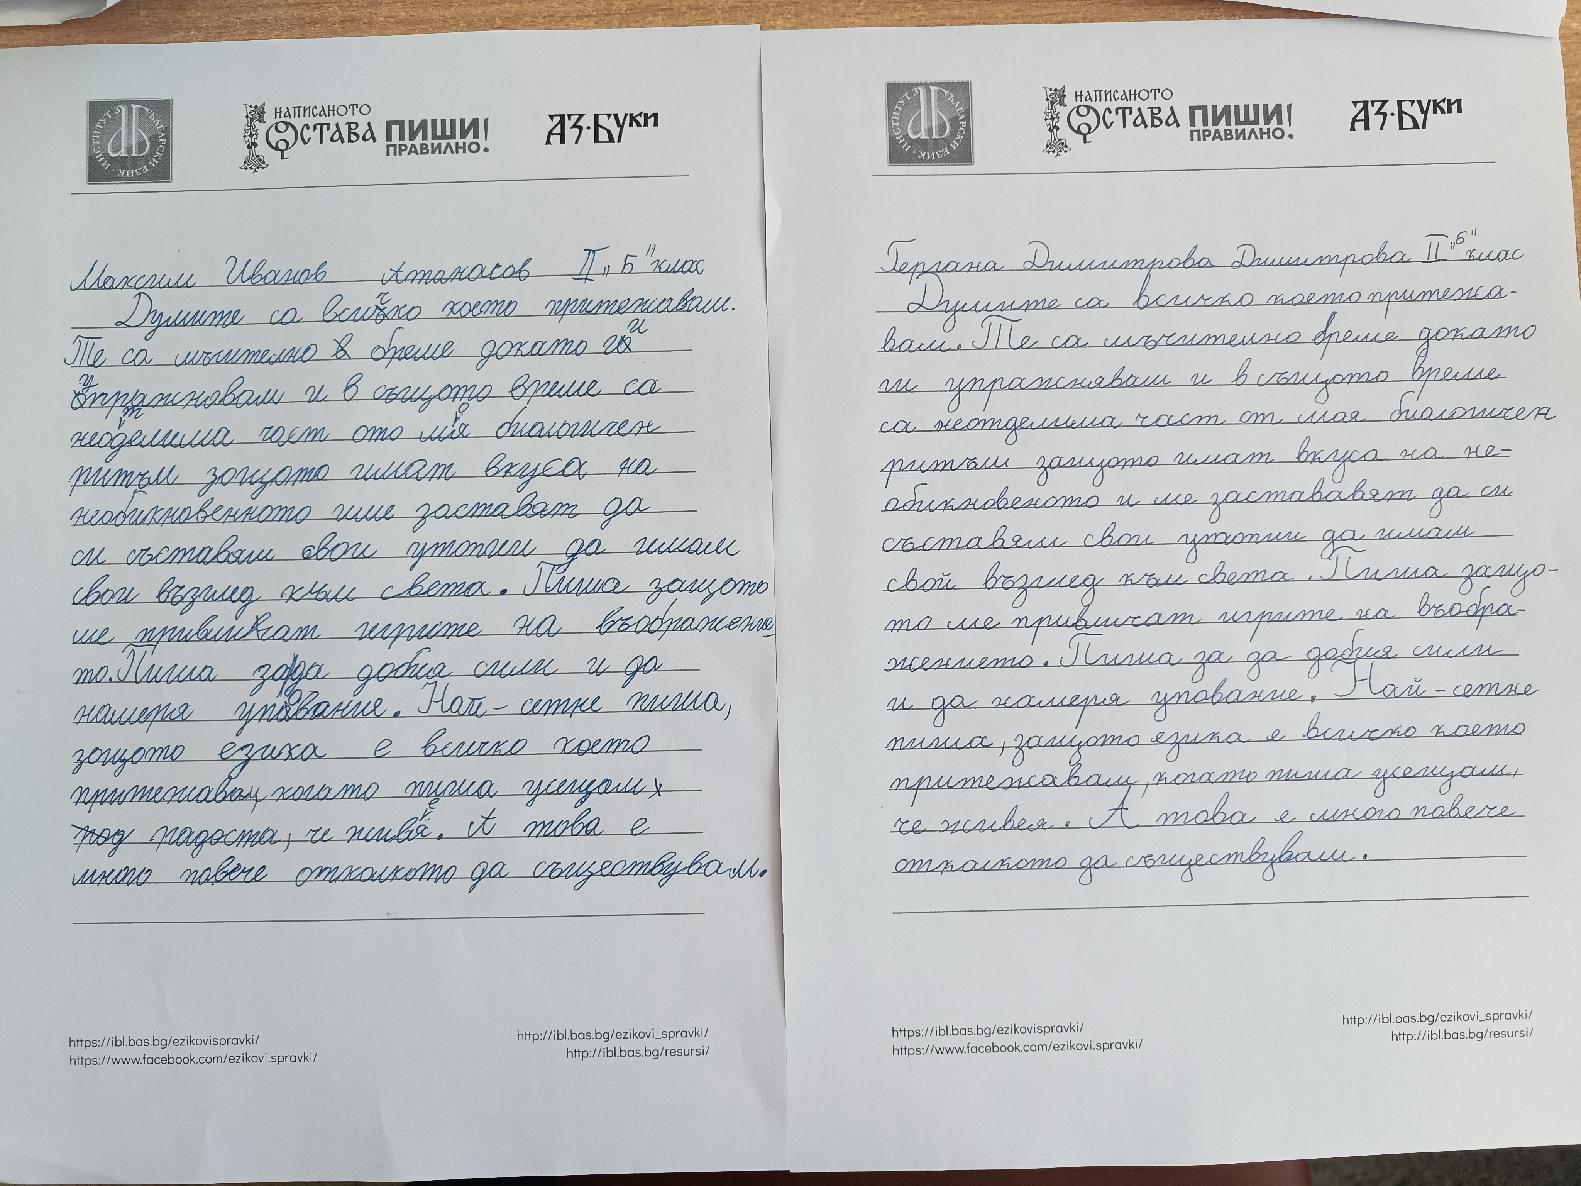 ИНСТИТУТ ЗА БЪЛГАРСКИ ЕЗИК
НАПИСАНОТО
ОСТАВА ПИШИ!
ПРАВИЛНО.
АЗ·БУКИ
Максим Иванов Атанасов II "Б" клас
Думите са всичко което притежавам.
Те са мъчително време докато ги
упражнявам и в същото време са
неотделима част ото моя биологичен
ритъм защото имат вкуса на
необикновенното име заставят да
си съставям свои утопии да имам
свои възглед към света. Пиша защото
ме привличат игрите на въображение
то. Пиша за да добия сили и да
намеря упование. Най-сетне пиша,
защото езика е всичко което
притежавам, когато пиша усещам
радоста, че живея. А това е
много повече отколкото да съществувам.
https://ibl.bas.bg/ezikovispravki/
https://www.facebook.com/ezikovi.spravki/
http://ibl.bas.bg/ezikovi_spravki/
http://ibl.bas.bg/resursi/
ИНСТИТУТ ЗА БЪЛГАРСКИ ЕЗИК
НАПИСАНОТО
ОСТАВА ПИШИ!
ПРАВИЛНО.
АЗ·БУКИ
Гергана Димитрова Димитрова II "Б" клас
Думите са всичко което притежа-
вам. Те са мъчително време докато
ги упражнявам и в същото време
са неотделима част от моя биологичен
ритъм защото имат вкуса на не-
обикновеното и ме застававят да си
съставям свои утопии да имам
свой възглед към света. Пиша защо-
то ме привличат игрите на въобра-
жението. Пиша за да добия сили
и да намеря упование. Най-сетне
пиша, защото езика е всичко което
притежавам, когато пиша усещам,
че живея. А това е много повече
отколкото да съществувам.
https://ibl.bas.bg/ezikovispravki/
https://www.facebook.com/ezikovi.spravki/
http://ibl.bas.bg/ezikovi_spravki/
http://ibl.bas.bg/resursi/